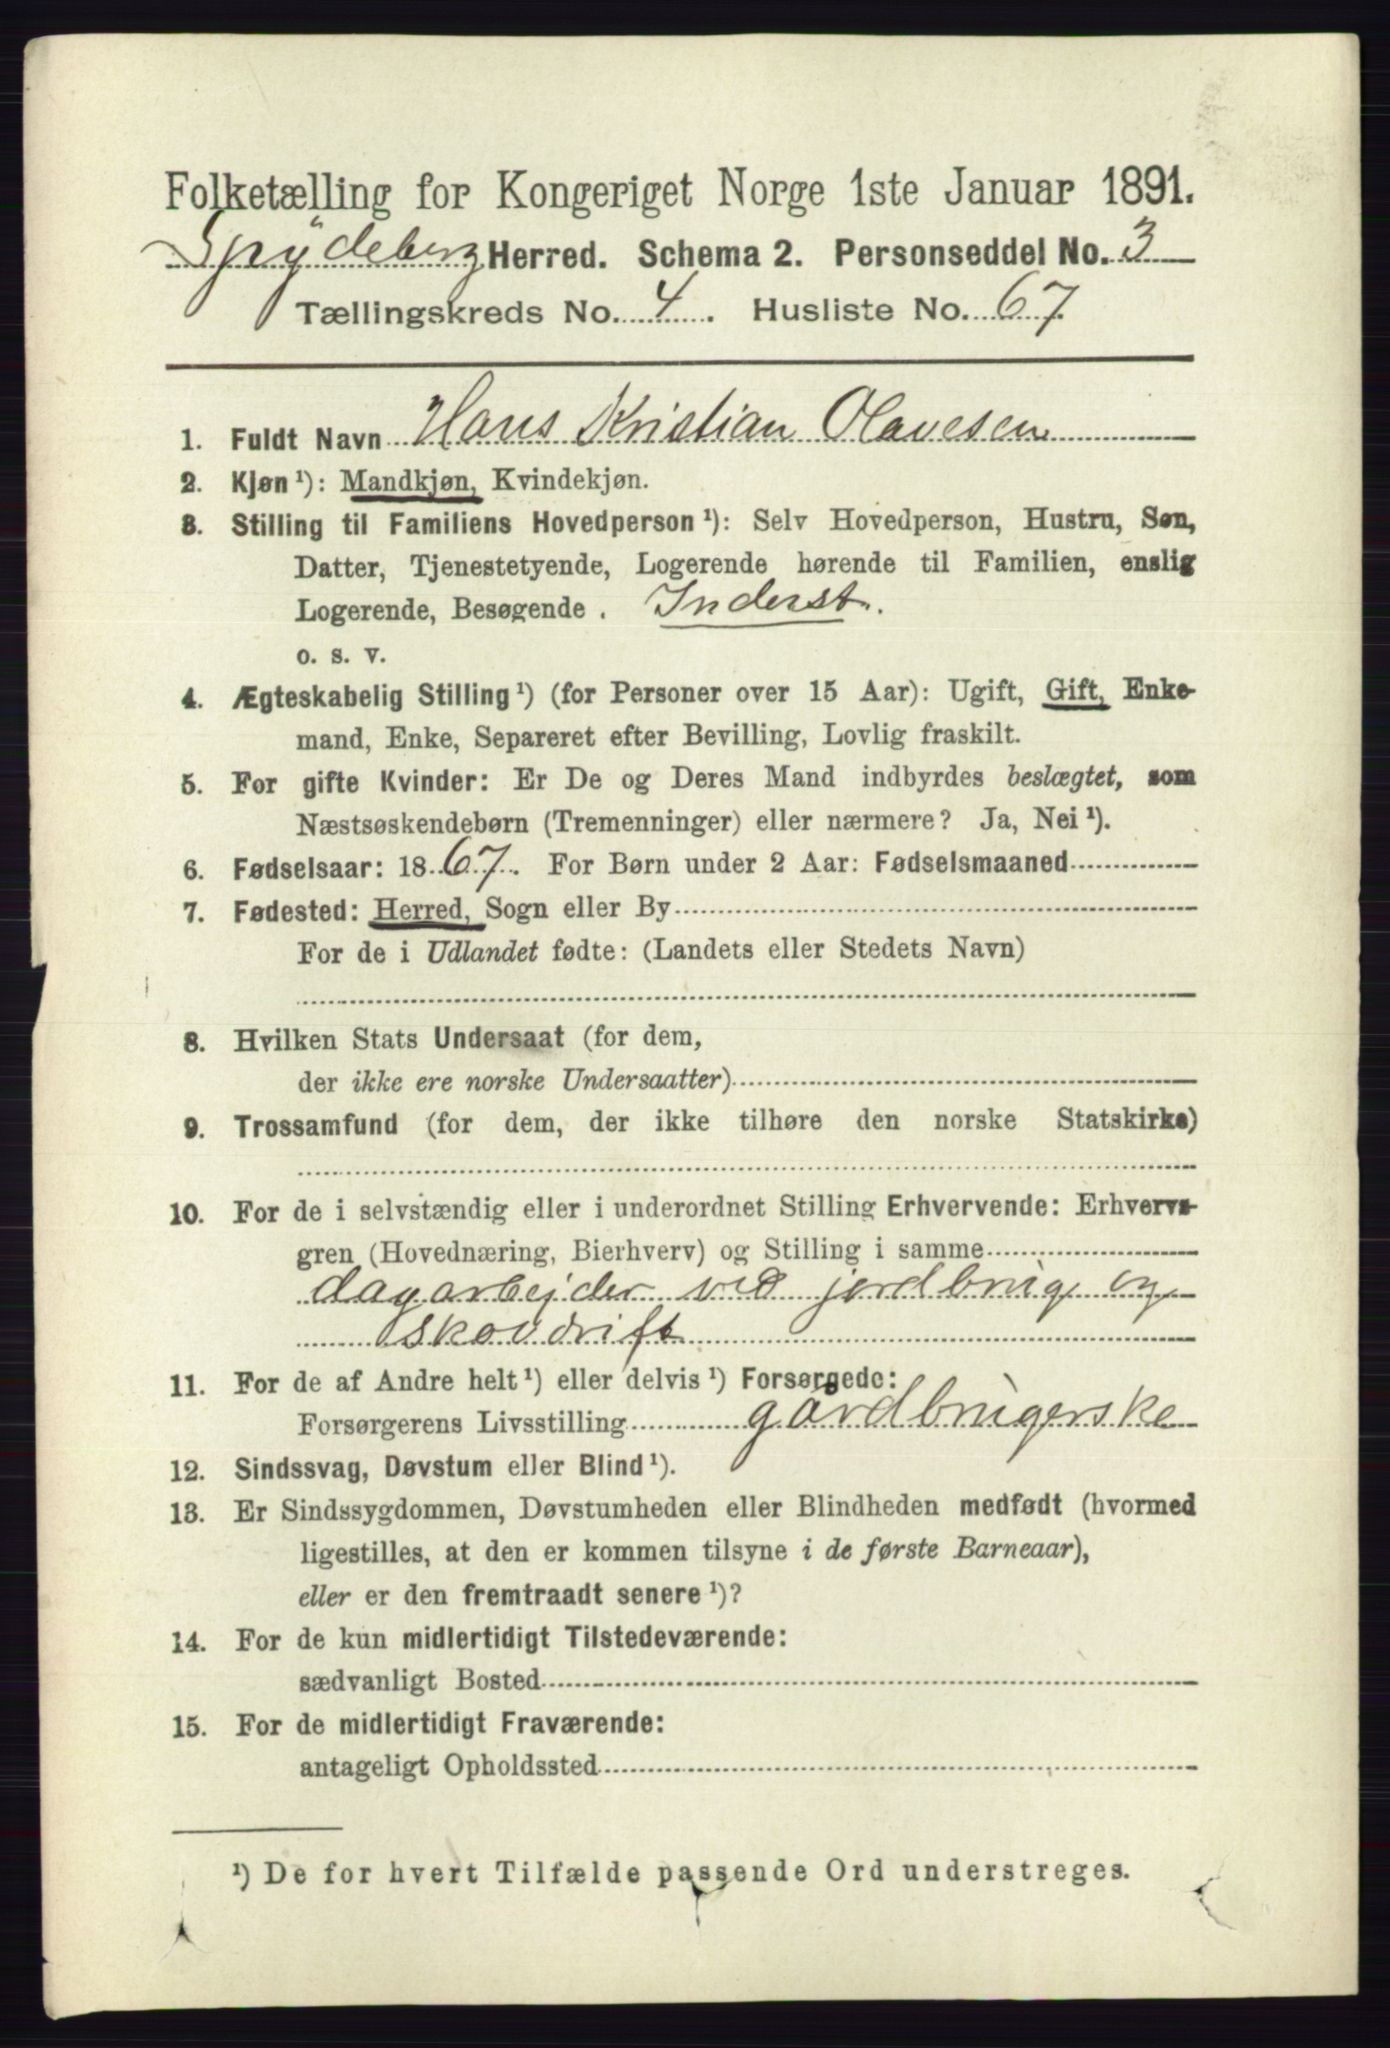 Folketælling for Kongeriget Norge 1ste Januar 1891.
Spydeberg Herred. Schema 2. Personseddel No. 3
Tællingskreds No. 4. Husliste No. 67.
1. Fuldt Navn Hans Kristian Olavesen
2. Kjøn ¹): Mandkjøn, Kvindekjøn.
3. Stilling til Familiens Hovedperson ¹): Selv Hovedperson, Hustru, Søn,
Datter, Tjenestetyende, Logerende hørende til Familien, enslig
Logerende, Besøgende . Inderst.
o. s. v.
4. Ægteskabelig Stilling ¹) (for Personer over 15 Aar): Ugift, Gift, Enke-
mand, Enke, Separeret efter Bevilling, Lovlig fraskilt.
5. For gifte Kvinder: Er De og Deres Mand indbyrdes beslægtet, som
Næstsøskendebørn (Tremenninger) eller nærmere? Ja, Nei ¹).
6. Fødselsaar: 1867. For Børn under 2 Aar: Fødselsmaaned
7. Fødested: Herred, Sogn eller By
For de i Udlandet fødte: (Landets eller Stedets Navn)
8. Hvilken Stats Undersaat (for dem,
der ikke ere norske Undersaatter)
9. Trossamfund (for dem, der ikke tilhøre den norske Statskirke)
10. For de i selvstændig eller i underordnet Stilling Erhvervende: Erhvervs-
gren (Hovednæring, Bierhverv) og Stilling i samme
dagarbejder ved jordbrug og
skovdrift
11. For de af Andre helt ¹) eller delvis ¹) Forsørgede:
Forsørgerens Livsstilling gårdbrugerske
12. Sindssvag, Døvstum eller Blind ¹).
13. Er Sindssygdommen, Døvstumheden eller Blindheden medfødt (hvormed
ligestilles, at den er kommen tilsyne i de første Barneaar),
eller er den fremtraadt senere ¹)?
14. For de kun midlertidigt Tilstedeværende:
sædvanligt Bosted
15. For de midlertidigt Fraværende:
antageligt Opholdssted
¹) De for hvert Tilfælde passende Ord understreges.